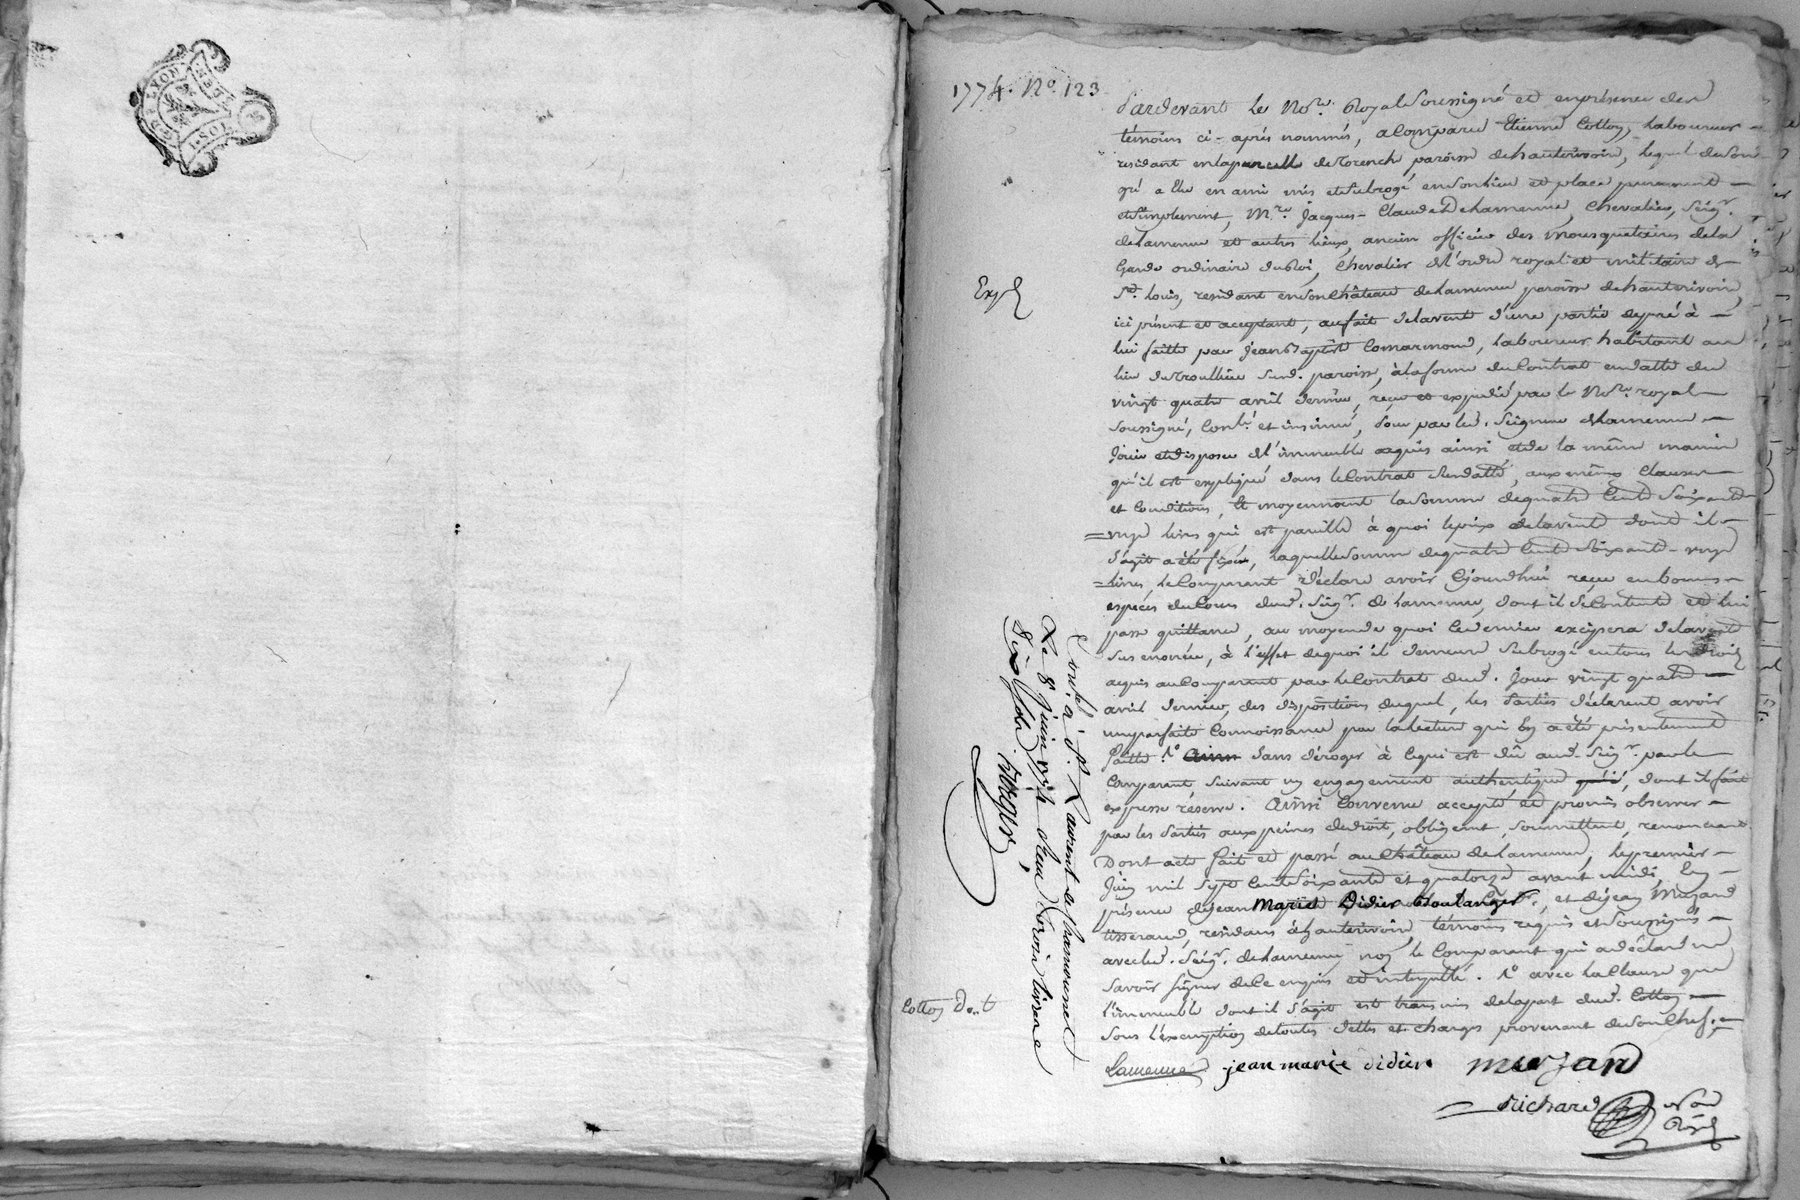 GEN. DE LYON
1774. No. 123
Pardevant le Nore. Royal Soussigné et en présence des
témoins ci-après nommés, a Comparu Etienne Cottoy, laboureur
résidant en la parcelle de Rorench paroisse de hauterivoire, lequel de son
gré a Elu en ami mis et subrogé en son lieu et place purement
et simplement, Mre. Jacques-Claude De hamenue, Chevalier, Seigr.
de hamenue et autres lieux, ancien officier des mousquetaires de la
Garde ordinaire du Roi, Chevalier de l'ordre royal et militaire de
St. Louis, résidant en son Château de hamenue paroisse de hauterivoire,
ici présent et acceptant, au fait de la vente d'une partie de pré à
lui faitte par Jean Baptiste Comarmond, laboureur habitant au
lieu du Trouillieu sud. paroisse, à la forme du Contrat en datte du
vingt quatre avril dernier, reçu et expédié par le Nore. royal
Soussigné, Conlé. et insinué, pour par led. Seigneur de hamenue
Jouir et disposer de l'immeuble acquis ainsi et de la même maniere
qu'il est expliqué dans le Contrat susdatté, aux mêmes Clauses
et Conditions, Et moyennant la somme de quatre Cents Soixante
onze livres qui est pareille à quoi le prix de la vente dont il
s'agit a été fixé, laquelle somme de quatre Cents Soixante-onze
livres, le Comparant déclare avoir Ejourdhui reçue en bonnes
espèces du Cours dud. Seigr. de hamenue, dont il se Contente et lui
passe quittance, au moyen de quoi led. dernier exipera de la vente
sus énoncée, à l'effet de quoi il demeure subrogé en tous les Droits
acquis au Comparant par le Contrat dud. Jour vingt quatre
avril dernier, des dispositions duquel, les Parties déclarent avoir
une parfaite Connoissance par la lecture qui En a été présentement
faitte. 1° sans déroger à ce qui est dû aud. Seigr. par le
Comparant, suivant un engagement authentique, dont il fait
expresse réserve. Ainsi Convenu accepté et promis observer
par les Parties aux peines de droit, obligeant, soumettant, renonçant
Dont acte fait et passé au Château de hamenue, le premier
Juin mil sept Cents soixante et quatorze avant midi, En
présence de Jean Marie Didier Boulanger, et de Jean Mozand
tisserand, résidans à hauterivoire, témoins requis et soussignés
avec led. Seigr. de hamenue non le Comparant qui a déclaré ne
savoir signer de Ce enquis et interpellé. 1° avec la Clause que
l'immeuble dont il s'agit est transmis de la part dud. Cottoy
sous l'exemption de toutes dettes et charges provenant de son Chef.
Expé
Conlé. à St. Laurent de Chamousset
Le 8 Juin 1774 Reçu trois livres
dix sols.
Cottoy
Lamenue jean marie didier mozand
Richard Nore
Royal